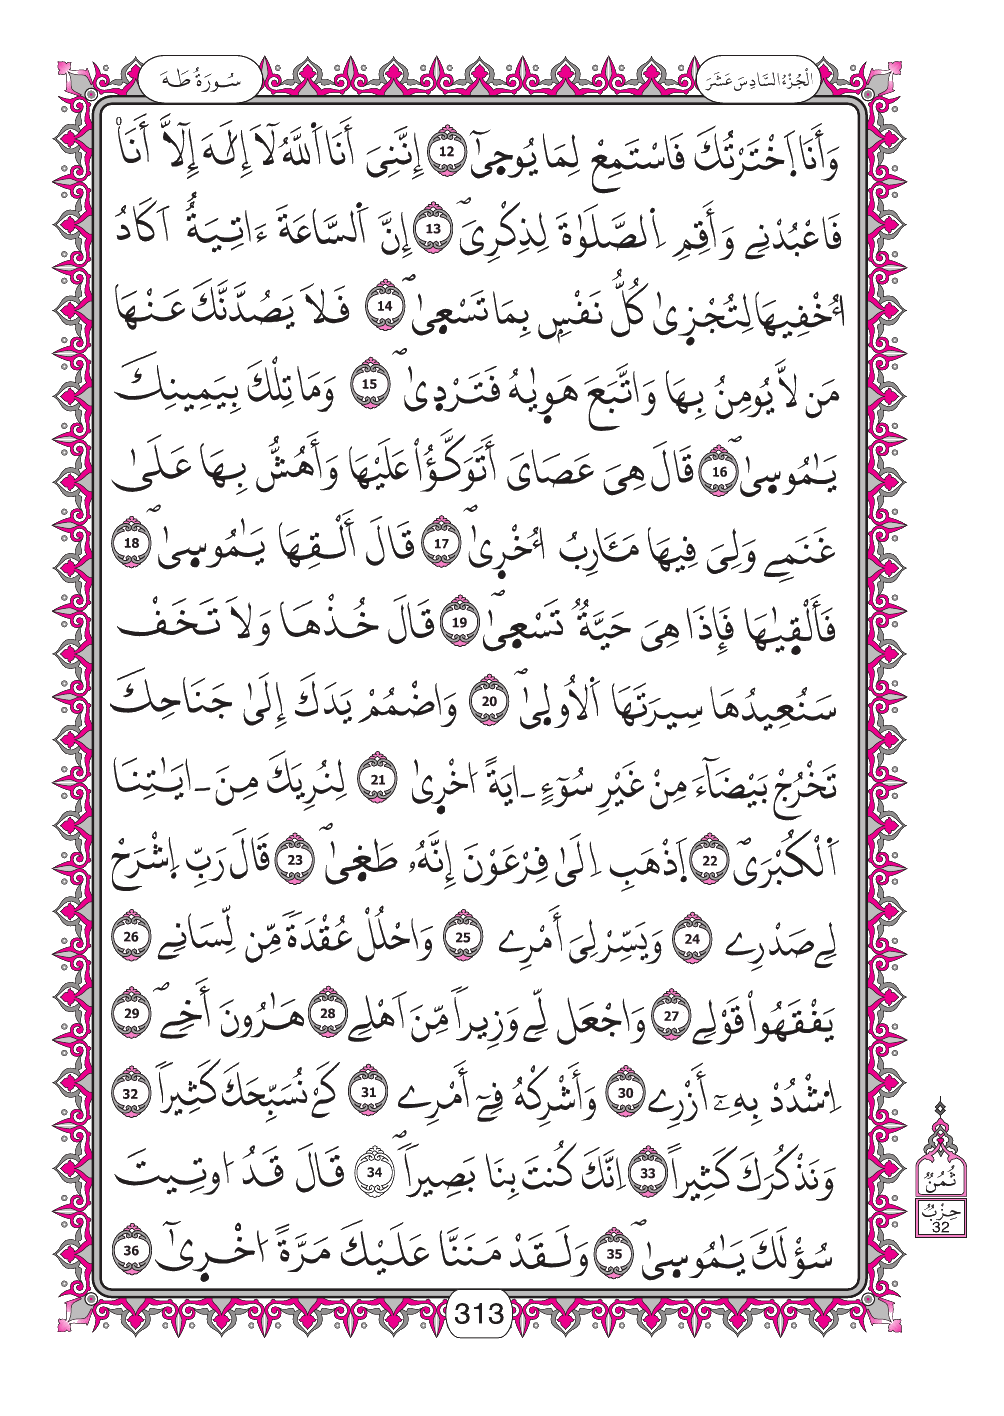 الْجُزْءُ السَّادِسَ عَشَرَ
سُورَةُ طَهَ
وَأَنَا اَ۪خْتَرْتُكَ فَاسْتَمِعْ لِمَا يُوح۪ىٰٓ 12 إِنَّنِىَ أَنَا اَ۬للَّهُ لَآ إِلَٰهَ إِلَّآ أَنَا۠
فَاعْبُدْنِے وَأَقِمِ اِ۬لصَّلَوٰةَ لِذِكْرِىَ 13 إِنَّ اَ۬لسَّاعَةَ ءَاتِيَةٌ اَكَادُ
أُخْفِيهَا لِتُجْز۪ىٰ كُلُّ نَفْسٍۭ بِمَا تَسْع۪ىٰ 14 فَلَا يَصُدَّنَّكَ عَنْهَا
مَن لَّا يُومِنُ بِهَا وَاتَّبَعَ هَو۪ىٰهُ فَتَرْد۪ىٰ 15 وَمَا تِلْكَ بِيَمِينِكَ
يَٰمُوس۪ىٰ 16 قَالَ هِىَ عَصَاىَ أَتَوَكَّؤُاْ عَلَيْهَا وَأَهُشُّ بِهَا عَلَىٰ
غَنَمِے وَلِىَ فِيهَا مَـَٔارِبُ أُخْر۪ىٰ 17 قَالَ أَلْقِهَا يَٰمُوس۪ىٰ 18
فَأَلْق۪ىٰهَا فَإِذَا هِىَ حَيَّةٌ تَسْع۪ىٰ 19 قَالَ خُذْهَا وَلَا تَخَفْ
سَنُعِيدُهَا سِيرَتَهَا اَ۬لُاول۪ىٰ 20 وَاضْمُمْ يَدَكَ إِلَىٰ جَنَاحِكَ
تَخْرُجْ بَيْضَآءَ مِنْ غَيْرِ سُوٓءٍ ـ ايَةً اخْر۪ىٰ 21 لِنُرِيَكَ مِنَ ـ ايَٰتِنَا
اَ۬لْكُبْرَى 22 اَ۪ذْهَبِ اِلَىٰ فِرْعَوْنَ إِنَّهُۥ طَغ۪ىٰ 23 قَالَ رَبِّ اِ۪شْرَحْ
لِے صَدْرِے 24 وَيَسِّرْ لِىَ أَمْرِے 25 وَاحْلُلْ عُقْدَةً مِّن لِّسَانِے 26
يَفْقَهُواْ قَوْلِے 27 وَاجْعَل لِّے وَزِيراً مِّنَ اَهْلِے 28 هَٰرُونَ أَخِے 29
اِ۟شْدُدْ بِهِۦٓ أَزْرِے 30 وَأَشْرِكْهُ فِےٓ أَمْرِے 31 كَےْ نُسَبِّحَكَ كَثِيراً 32
وَنَذْكُرَكَ كَثِيراً 33 اِنَّكَ كُنتَ بِنَا بَصِيراً 34 قَالَ قَدُ اوتِيتَ
سُؤْلَكَ يَٰمُوس۪ىٰ 35 وَلَقَدْ مَنَنَّا عَلَيْكَ مَرَّةً اخْر۪ىٰٓ 36
ثُمُنُ
حِزْبُ
32
313